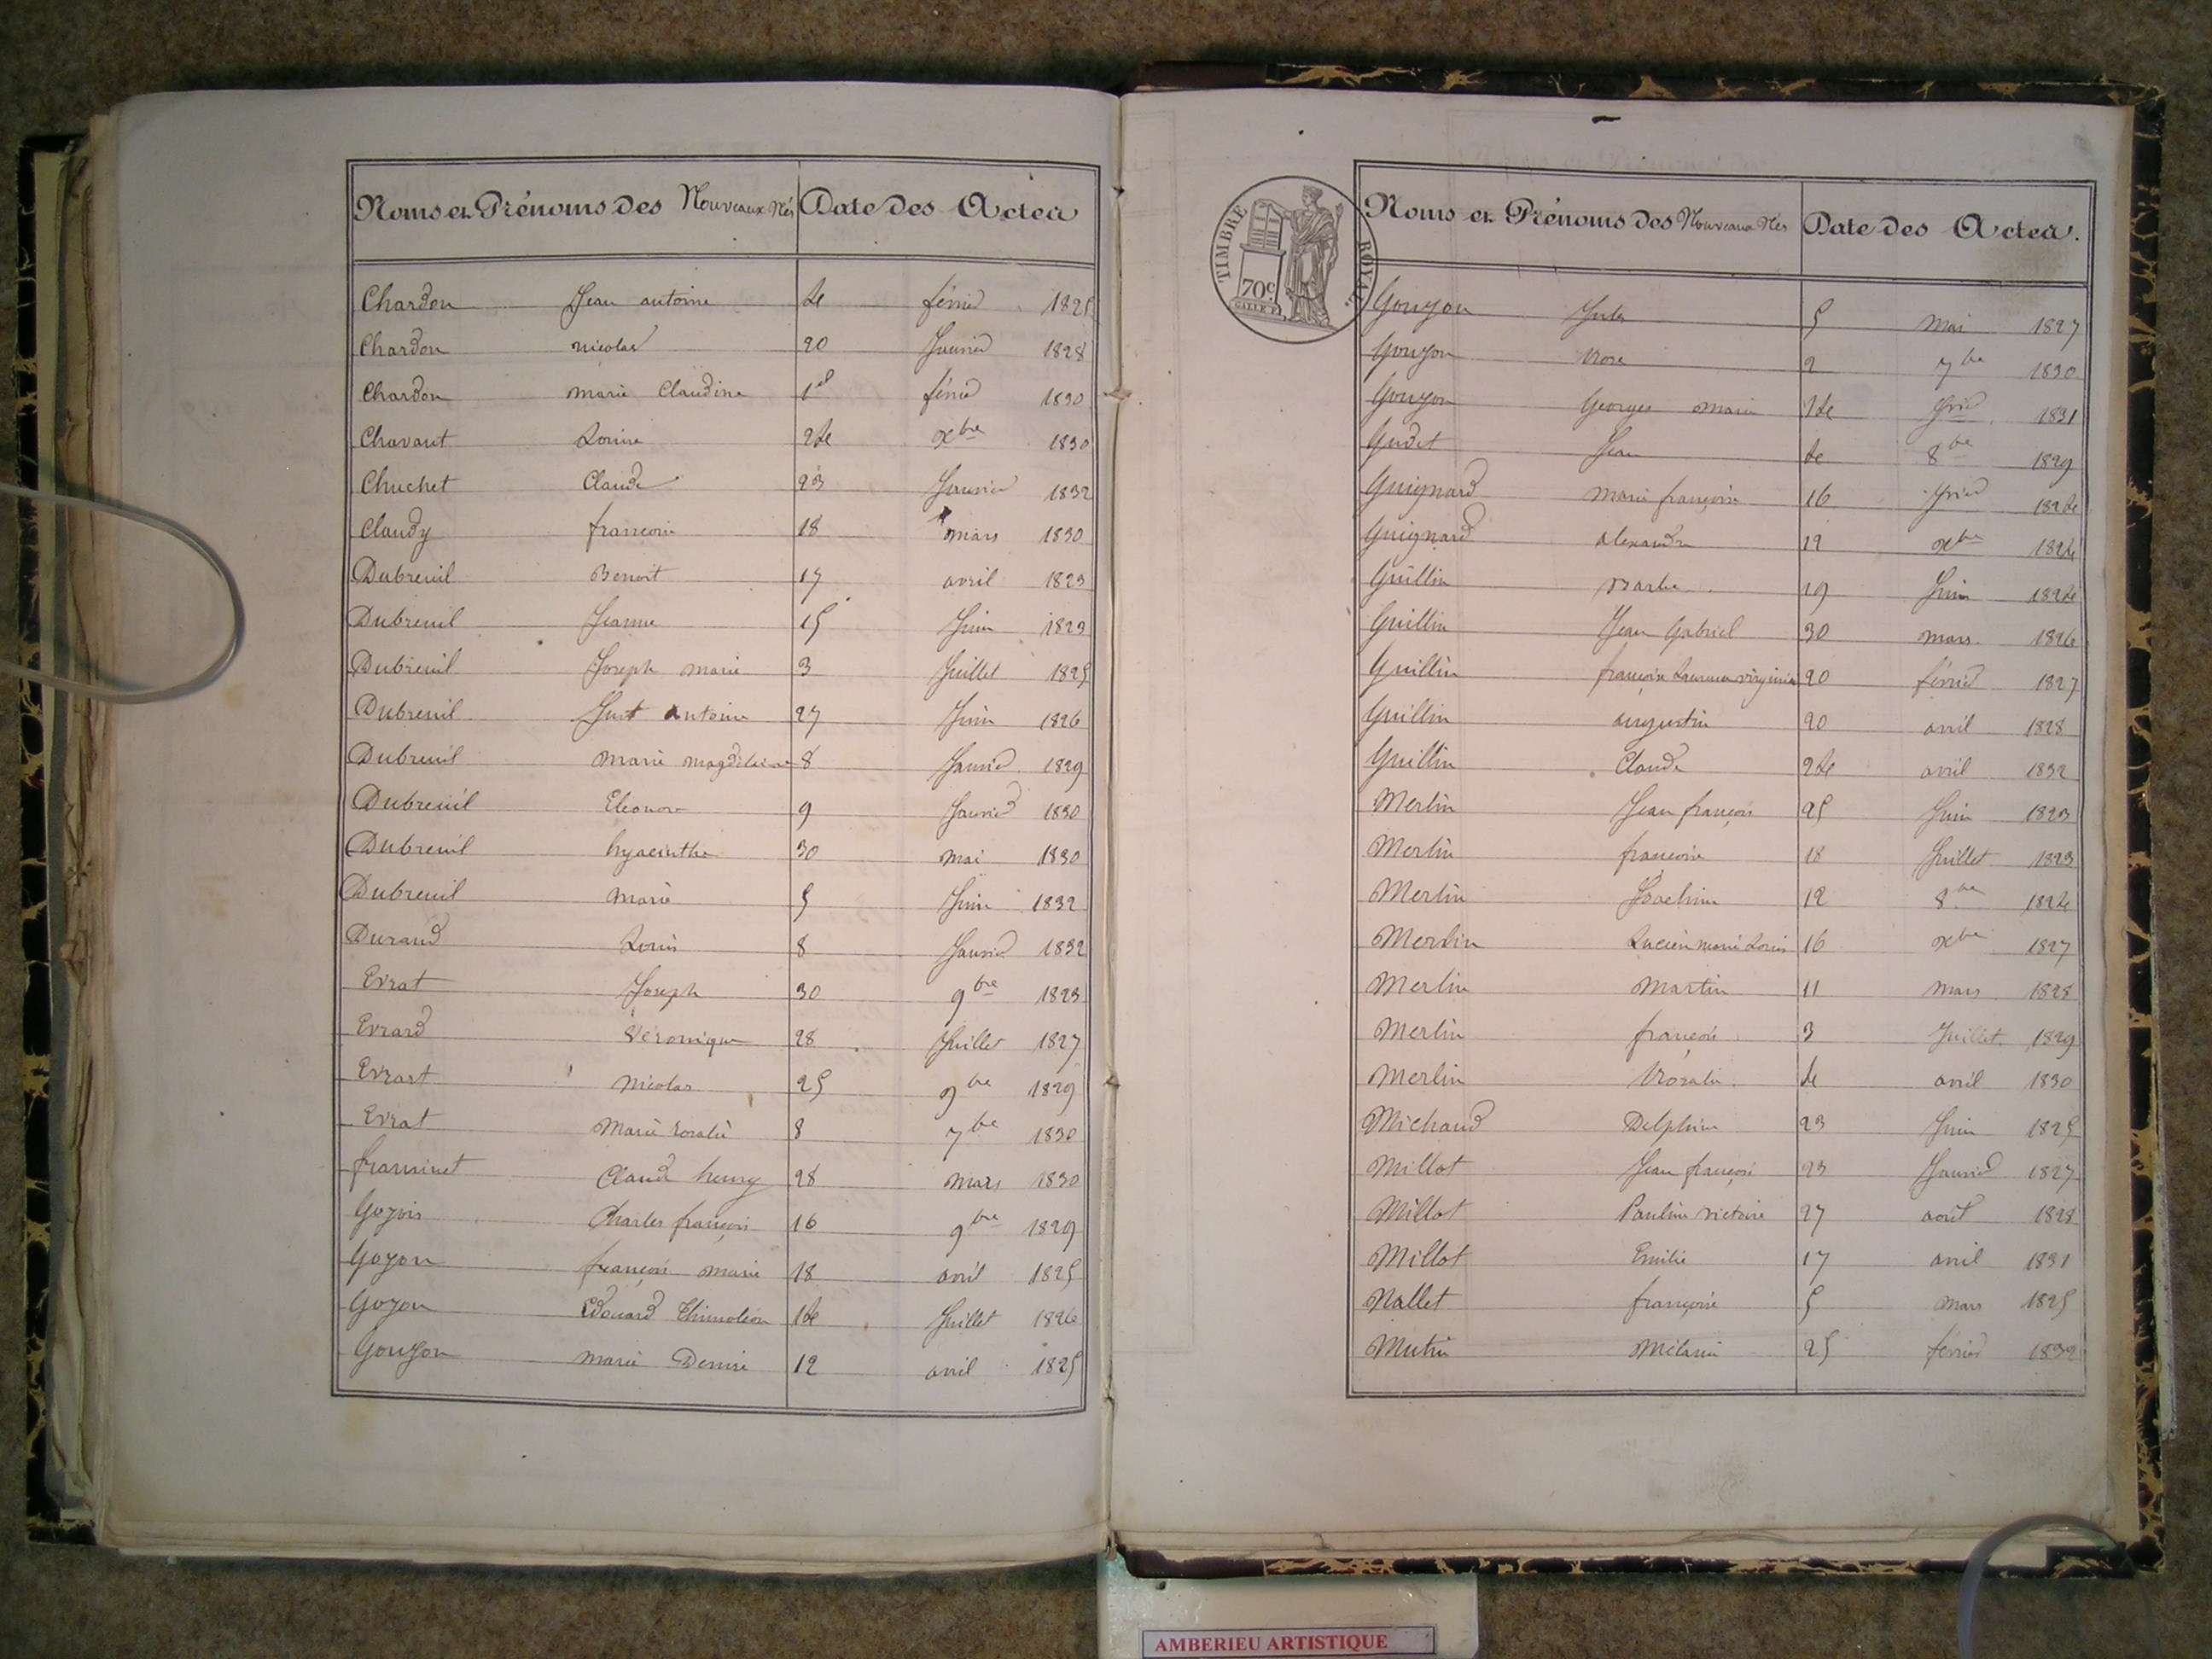 Noms et Prénoms des Nouveaux Nés Date des Actes
Chardon Jean antoine 4 février 1825
Chardon nicolas 20 Janvier 1828
Chardon marie Claudine 1er février 1830
Chavant Louise 24 xbre 1830
Chuchet Claude 23 Janvier 1832
Claudy françoise 18 mars 1830
Dubreuil Benoit 17 avril 1823
Dubreuil Jeanne 15 Juin 1823
Dubreuil Joseph marie 3 Juillet 1825
Dubreuil Just antoine 27 Juin 1826
Dubreuil marie magdelaine 8 Janvier 1829
Dubreuil Eleonore 9 Janvier 1830
Dubreuil hyacinthe 30 mai 1830
Dubreuil marie 5 Juin 1832
Durand Louis 8 Janvier 1832
Evrat Joseph 30 9bre 1823
Evrard Véronique 28 Juillet 1827
Evrart nicolas 25 9bre 1829
Evrat Marie rosalie 8 7bre 1830
Claude henry 28 mars 1830
Charles françois 16 9bre 1829
Goyon françois marie 18 avril 1825
Goyon Edouard Thimoléon 14 Juillet 1826
Gouyon marie Denise 12 avril 1825
TIMBRE ROYAL
70c.
Noms et Prénoms des Nouveaux Nés Date des Actes.
Gouyon Jules 5 mai 1827
Gouyon rose 2 7bre 1830
Gouyon Georges marie 1831
Gudet Jean 4 8bre 1829
Guignard marie françoise 16 1824
Guignard alexandre 12 xbre 1824
Guillin Barbe 19 Juin 1824
Guillin Jean Gabriel 30 mars 1826
Guillin françoise Laurence virginie 20 février 1827
Guillin augustin 20 avril 1828
Guillin Claude 24 avril 1832
Merlin Jean françois 25 Juin 1823
Merlin françoise 18 Juillet 1823
Merlin Joachim 12 8bre 1824
Merlin Lucien marie Louis 16 xbre 1827
Merlin Martin 11 mars 1828
Merlin françois 3 Juillet 1829
Merlin rosalie 4 avril 1830
Michaud Delphine 23 Juin 1825
Millot Jean françois 23 Janvier 1827
Millot Pauline victoire 27 août 1828
Millot Emilie 17 avril 1831
Mallet françoise 5 mars 1825
Mutin Mélanie 25 février 1832
AMBERIEU ARTISTIQUE